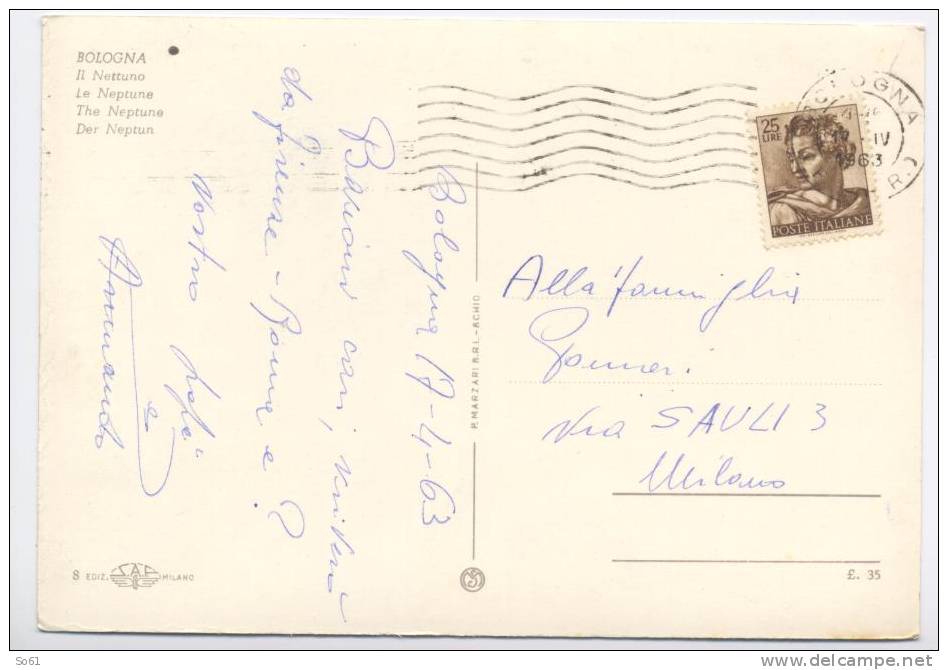 BOLOGNA
Il Nettuno
Le Neptune
The Neptune
Der Neptun
Bologna 17-4-63
cari,
da Firenze - Roma e?
Vostro
Armando
P. MARZARI S.R.L. - SCHIO
25
LIRE
POSTE ITALIANE
BOLOGNA
IV
1963
R.
Alla famiglia
Via SAULI 3
Milano
8 EDIZ. MILANO
£. 35
So61
www.delcampe.net